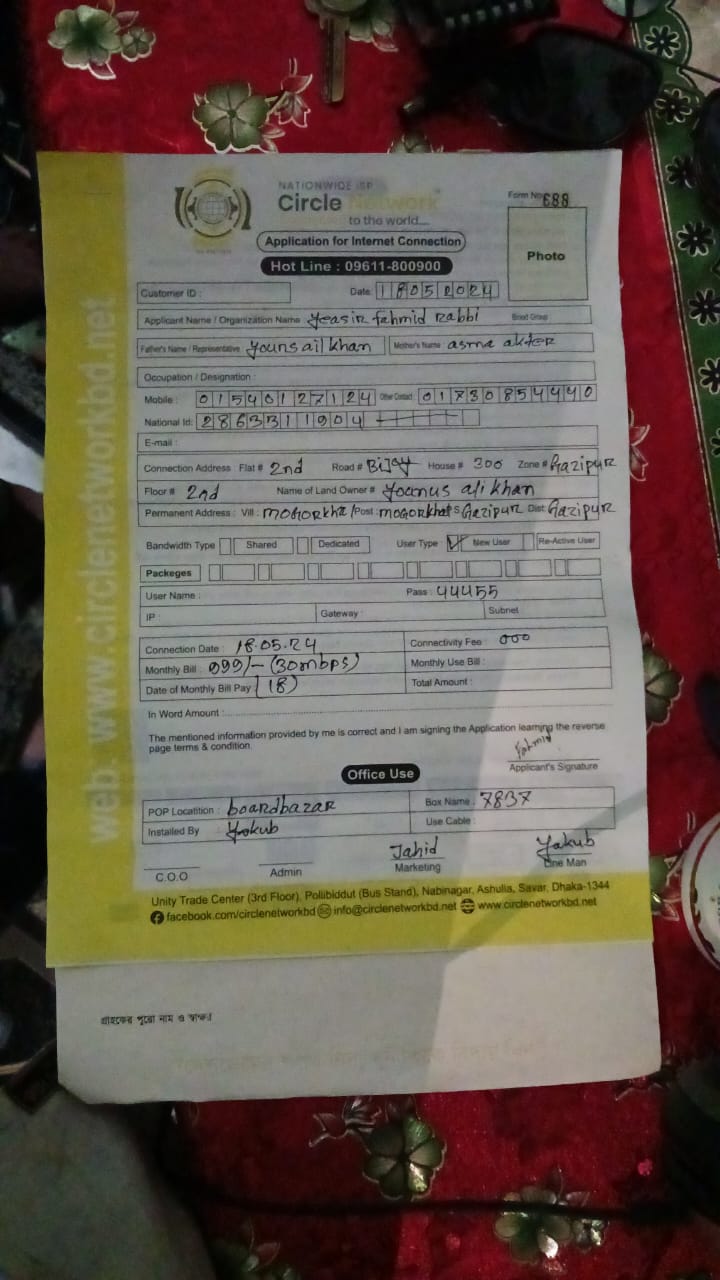 NATIONWIDE ISP
Circle Network
to the world....
Form No 688
Application for Internet Connection
Hot Line : 09611-800900
Photo
Customer ID :
Date 18052024
Applicant Name / Organization Name Yeasir fahmid Rabbi Blood Group
Father's Name / Representative Youns ail khan Mother's Name asma akter
Occupation / Designation :
Mobile : 01540127124 Other Contact 01730854440
National Id: 2863311904
E-mail :
Connection Address Flat # 2nd Road # Bijoy House # 300 Zone # Gazipur
Floor # 2nd Name of Land Owner # Younus ali khan
Permanent Address : Vill : MOGORKhal Post: MOGORKhal P.S Gazipur Dist: Gazipur
Bandwidth Type Shared Dedicated User Type New User Re-Active User
Packeges
User Name : Pass : 44455
IP : Gateway : Subnet
Connection Date : 18.05.24 Connectivity Fee : 000
Monthly Bill : 999/- (30mbps) Monthly Use Bill :
Date of Monthly Bill Pay (18) Total Amount :
In Word Amount :
The mentioned information provided by me is correct and I am signing the Application learning the reverse
page terms & condition.
Fahmid
Applicant's Signature
Office Use
POP Locatition : boardbazar Box Name : 7837
Installed By Yakub Use Cable :
Jahid Yakub
C.O.O Admin Marketing Line Man
Unity Trade Center (3rd Floor), Pollibiddut (Bus Stand), Nabinagar, Ashulia, Savar, Dhaka-1344
facebook.com/circlenetworkbd info@circlenetworkbd.net www.circlenetworkbd.net
web: www.circlenetworkbd.net
গ্রাহকের পুরো নাম ও স্বাক্ষর